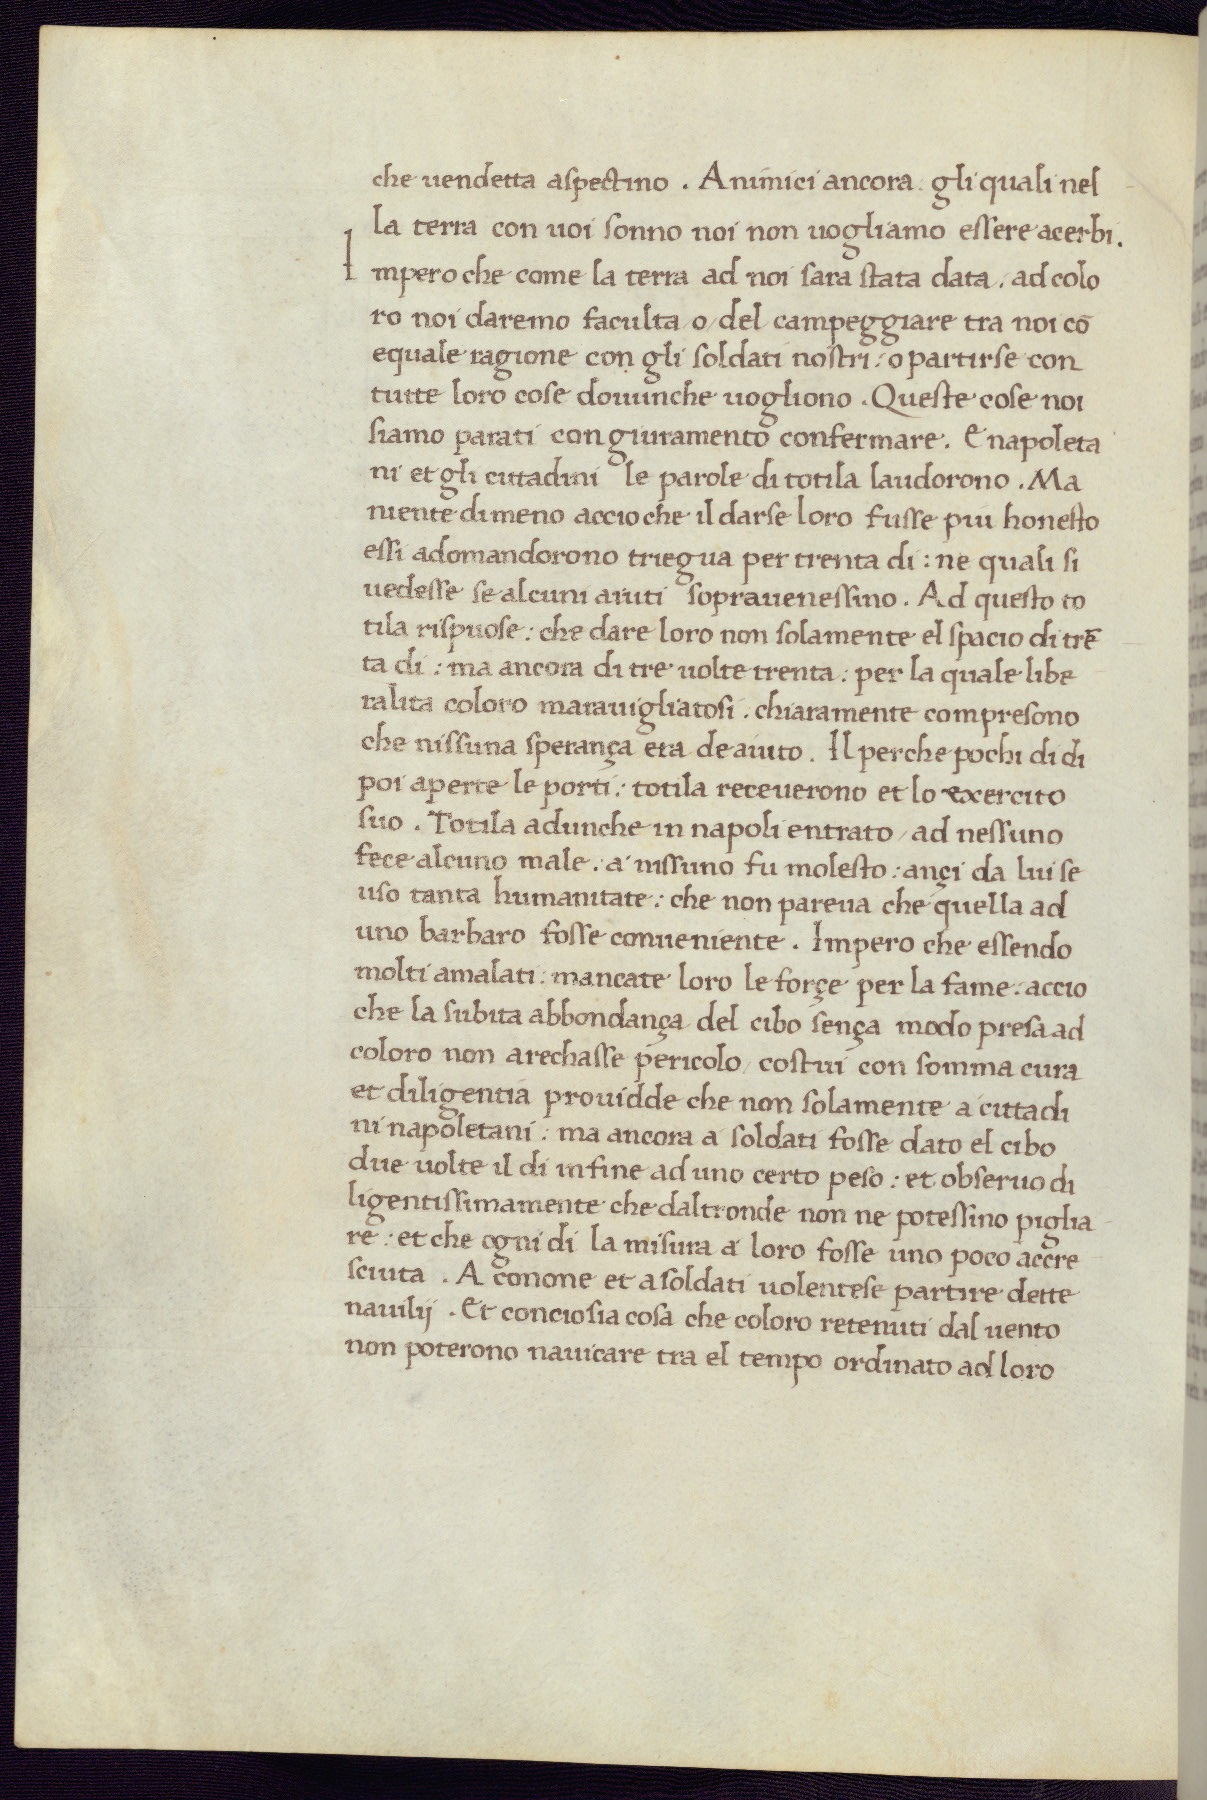 che uendetta aspectino . A nimici ancora gli quali nel
la terra con uoi sonno noi non uogliamo essere acerbi .
Impero che come la terra ad noi sara stata data . ad colo
ro noi daremo faculta / o / del campeggiare tra noi cō
equale ragione con gli soldati nostri : o partirse con
tutte loro cose douunche uogliono . Queste cose noi
siamo parati con giuramento confermare . E napoleta
ni et gli cittadini le parole di totila laudorono . Ma
niente di meno accio che il darse loro fusse piu honesto
essi adomandorono triegua per trenta di : ne quali si
uedesse se alcuni aiuti sopraue nessino . Ad questo to
tila rispuose : che dare loro non solamente el spacio di trē
ta di : ma ancora di tre uolte trenta : per la quale libe
ralita coloro marauigliatosi . chiaramente compresono
che nissuna sperança era de aiuto . Il perche pochi di di
poi aperte le porti : totila receuerono et lo exercito
suo . Totila adunche in napoli entrato / ad nessuno
fece alcuno male . a nissuno fu molesto : ançi da lui se
uso tanta humanitate : che non pareua che quella ad
uno barbaro fosse conueniente . Impero che essendo
molti amalati : mancate loro le forçe per la fame : accio
che la subita abbondança del cibo sença modo presa ad
coloro non arechasse pericolo / costui con somma cura
et diligentia prouidde che non solamente a cittadi
ni napoletani : ma ancora a soldati fosse dato el cibo
due uolte il di infine ad uno certo peso : et obseruo di
ligentissimamente che daltronde non ne potessino piglia
re : et che ogni di la misura a loro fosse uno poco accre
sciuta . A conone et a soldati uolentese partire dette
nauilij . Et concio sia cosa che coloro retenuti dal uento
non poterono nauicare tra el tempo ordinato ad loro